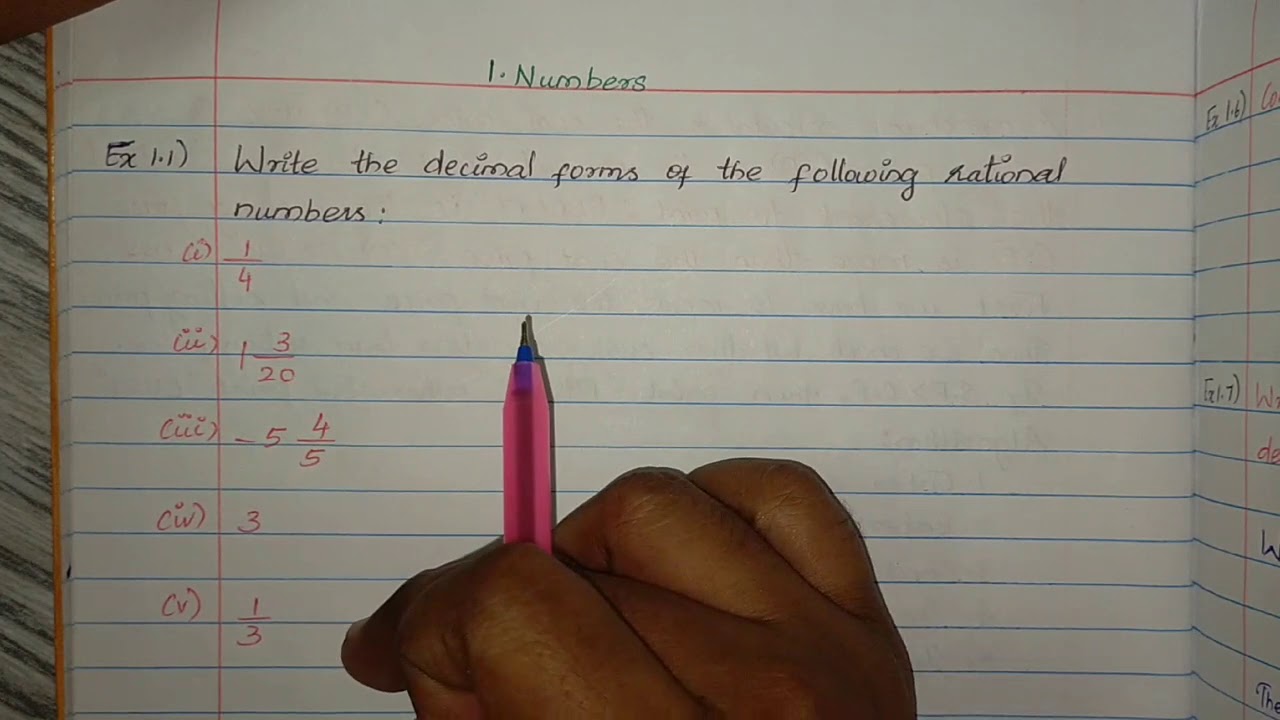 1. Numbers
Ex 1.1) Write the decimal forms of the following rational
numbers:
(i) 1/4
(ii) 1 3/20
(iii) -5 4/5
(iv) 3
(v) 1/3
Ex 1.6)
Ex 1.7)